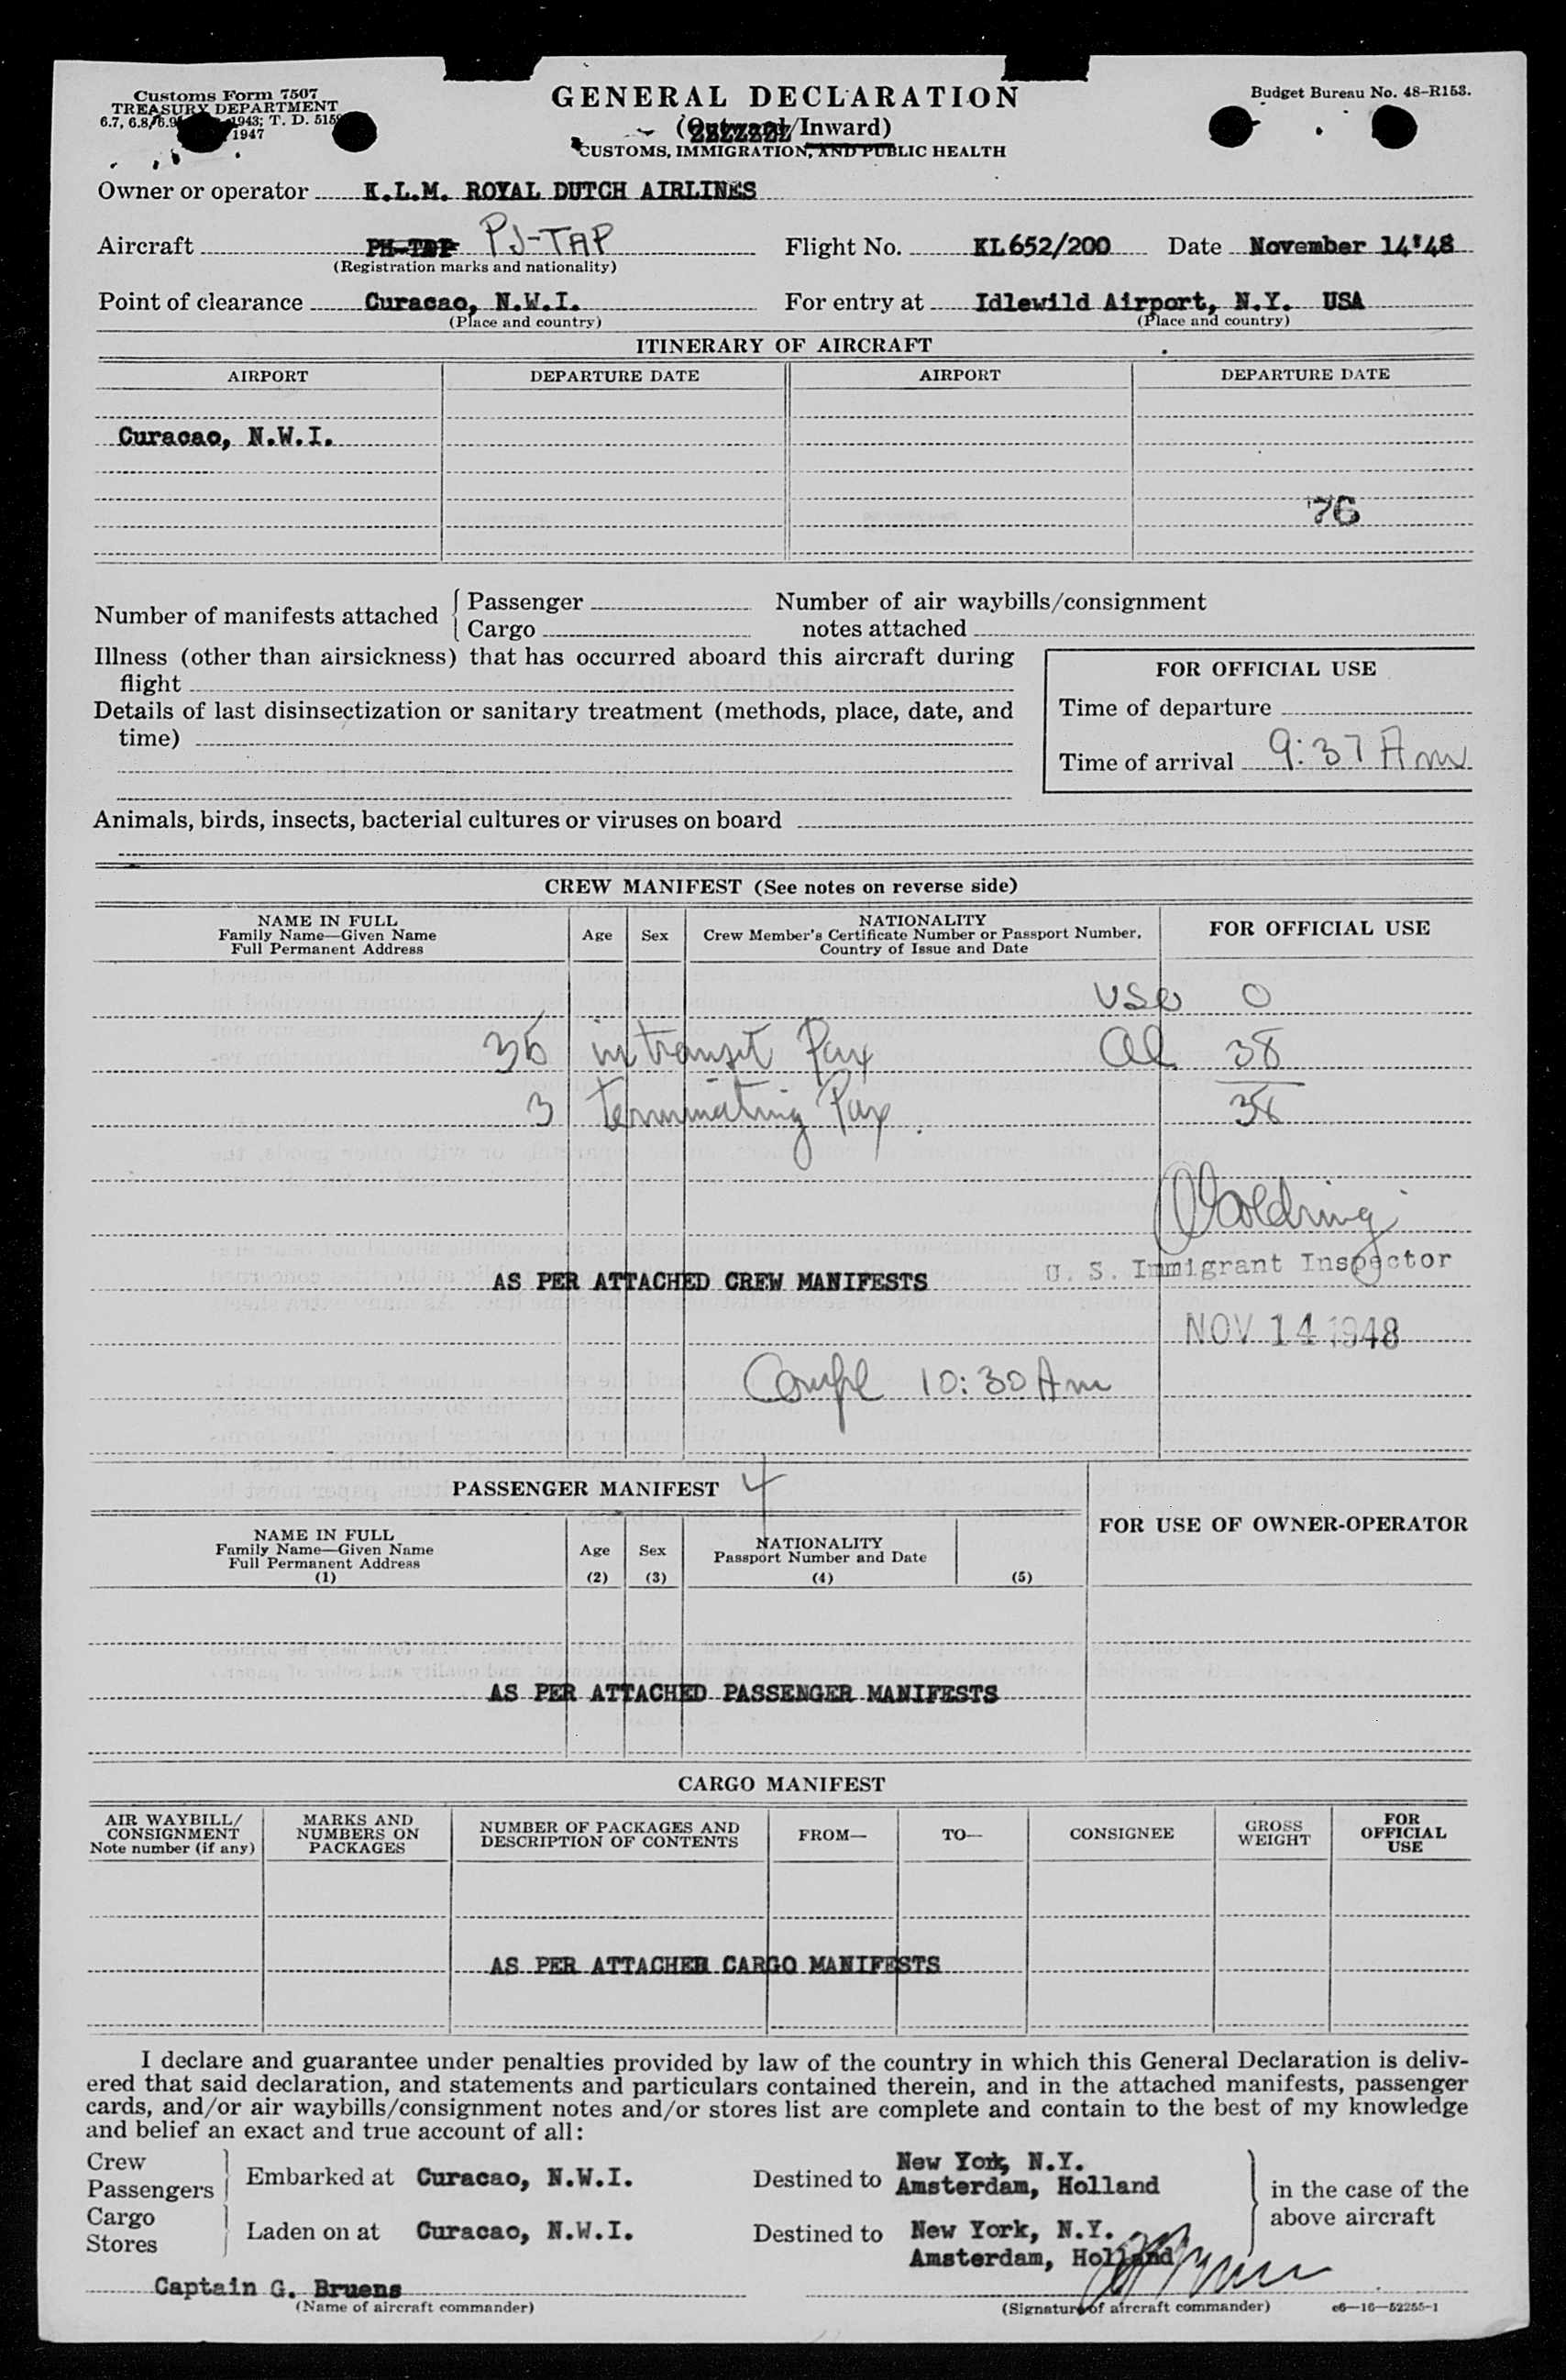 Customs Form 7507
TREASURY DEPARTMENT
6.7, 6.8, 1943; T. D.
1947
GENERAL DECLARATION
(Outward/Inward)
CUSTOMS, IMMIGRATION, AND PUBLIC HEALTH
Budget Bureau No. 48-R153.
Owner or operator K.L.M. ROYAL DUTCH AIRLINES
Aircraft PJ-TAP Flight No. KL652/200 Date November 14'48
(Registration marks and nationality)
Point of clearance Curacao, N.W.I. For entry at Idlewild Airport, N.Y. USA
(Place and country) (Place and country)
ITINERARY OF AIRCRAFT
AIRPORT DEPARTURE DATE AIRPORT DEPARTURE DATE
Curacao, N.W.I.
76
Number of manifests attached { Passenger Number of air waybills/consignment
Cargo notes attached
Illness (other than airsickness) that has occurred aboard this aircraft during
flight
Details of last disinsectization or sanitary treatment (methods, place, date, and
time)
FOR OFFICIAL USE
Time of departure
Time of arrival 9:37 Am
Animals, birds, insects, bacterial cultures or viruses on board
CREW MANIFEST (See notes on reverse side)
NAME IN FULL
Family Name—Given Name
Full Permanent Address
Age Sex
NATIONALITY
Crew Member's Certificate Number or Passport Number,
Country of Issue and Date
FOR OFFICIAL USE
0
35 in transit Pax Al 38
3 terminating Pax 38
Goldring
U. S. Immigrant Inspector
AS PER ATTACHED CREW MANIFESTS
NOV 14 1948
Compl 10:30 Am
PASSENGER MANIFEST 4
NAME IN FULL
Family Name—Given Name
Full Permanent Address
(1)
Age
(2)
Sex
(3)
NATIONALITY
Passport Number and Date
(4) (5)
FOR USE OF OWNER-OPERATOR
AS PER ATTACHED PASSENGER MANIFESTS
CARGO MANIFEST
AIR WAYBILL/
CONSIGNMENT
Note number (if any)
MARKS AND
NUMBERS ON
PACKAGES
NUMBER OF PACKAGES AND
DESCRIPTION OF CONTENTS
FROM—
TO—
CONSIGNEE
GROSS
WEIGHT
FOR
OFFICIAL
USE
AS PER ATTACHED CARGO MANIFESTS
I declare and guarantee under penalties provided by law of the country in which this General Declaration is deliv-
ered that said declaration, and statements and particulars contained therein, and in the attached manifests, passenger
cards, and/or air waybills/consignment notes and/or stores list are complete and contain to the best of my knowledge
and belief an exact and true account of all:
Crew
Passengers
Embarked at Curacao, N.W.I. Destined to New York, N.Y.
Amsterdam, Holland
Cargo
Stores
Laden on at Curacao, N.W.I. Destined to New York, N.Y.
Amsterdam, Holland
in the case of the
above aircraft
Captain G. Bruens
(Name of aircraft commander) (Signature of aircraft commander) c6—16—52255-1